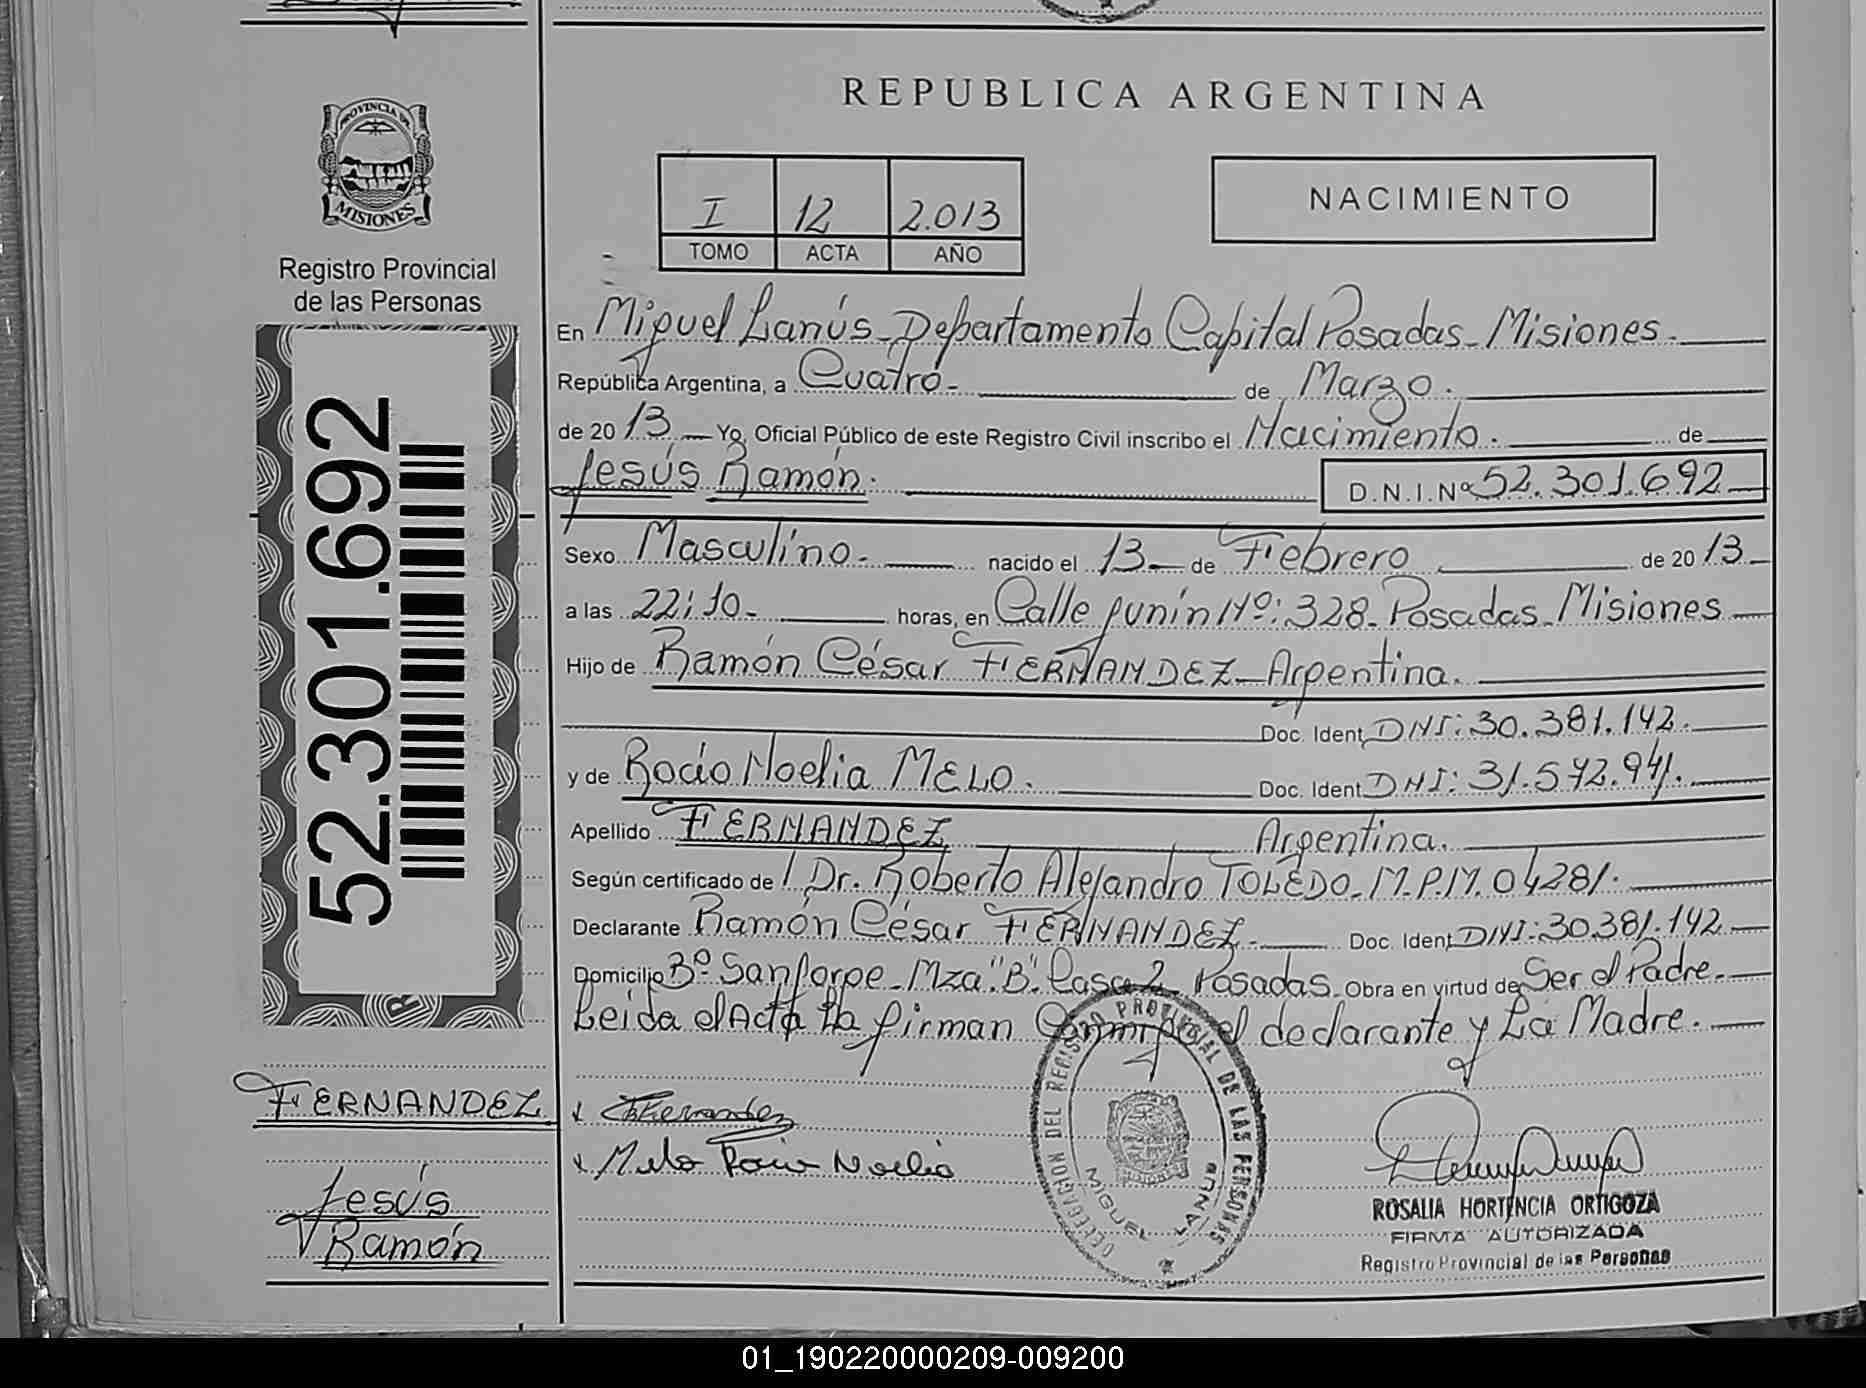 REPUBLICA ARGENTINA
PROVINCIA DE
MISIONES
Registro Provincial
de las Personas
52.301.692
I 12 2.013
TOMO ACTA AÑO
NACIMIENTO
En Miguel Lanús - Departamento Capital Posadas - Misiones.
República Argentina, a Cuatro - de Marzo.
de 20 13 Yo, Oficial Público de este Registro Civil inscribo el Nacimiento. de
Jesús Ramón. D.N.I.Nº 52.301.692
Sexo Masculino. nacido el 13 de Febrero de 20 13
a las 22:10 - horas, en Calle Junín Nº: 328 - Posadas - Misiones
Hijo de Ramón César FERNANDEZ - Argentina.
Doc. Ident. DNI: 30.381.142.
y de Rocio Noelia MELO. Doc. Ident. DNI: 31.572.941.
Apellido FERNANDEZ Argentina.
Según certificado de / Dr. Roberto Alejandro TOLEDO - M.P.M. 04281.
Declarante Ramón César FERNANDEZ - Doc. Ident. DNI: 30.381.142
Domicilio Bº San Jorge - Mza "B" Casa 2 - Posadas. Obra en virtud de Ser el Padre.
Leida el Acta la firman Conmigo el declarante y La Madre.
FERNANDEZ
Jesús
Ramón
x Fernandez
x Melo Rocio Noelia
DELEGACION DEL REGISTRO PROVINCIAL DE LAS PERSONAS
MIGUEL LANUS
ROSALIA HORTENCIA ORTIGOZA
FIRMA AUTORIZADA
Registro Provincial de las Personas
01_190220000209-009200